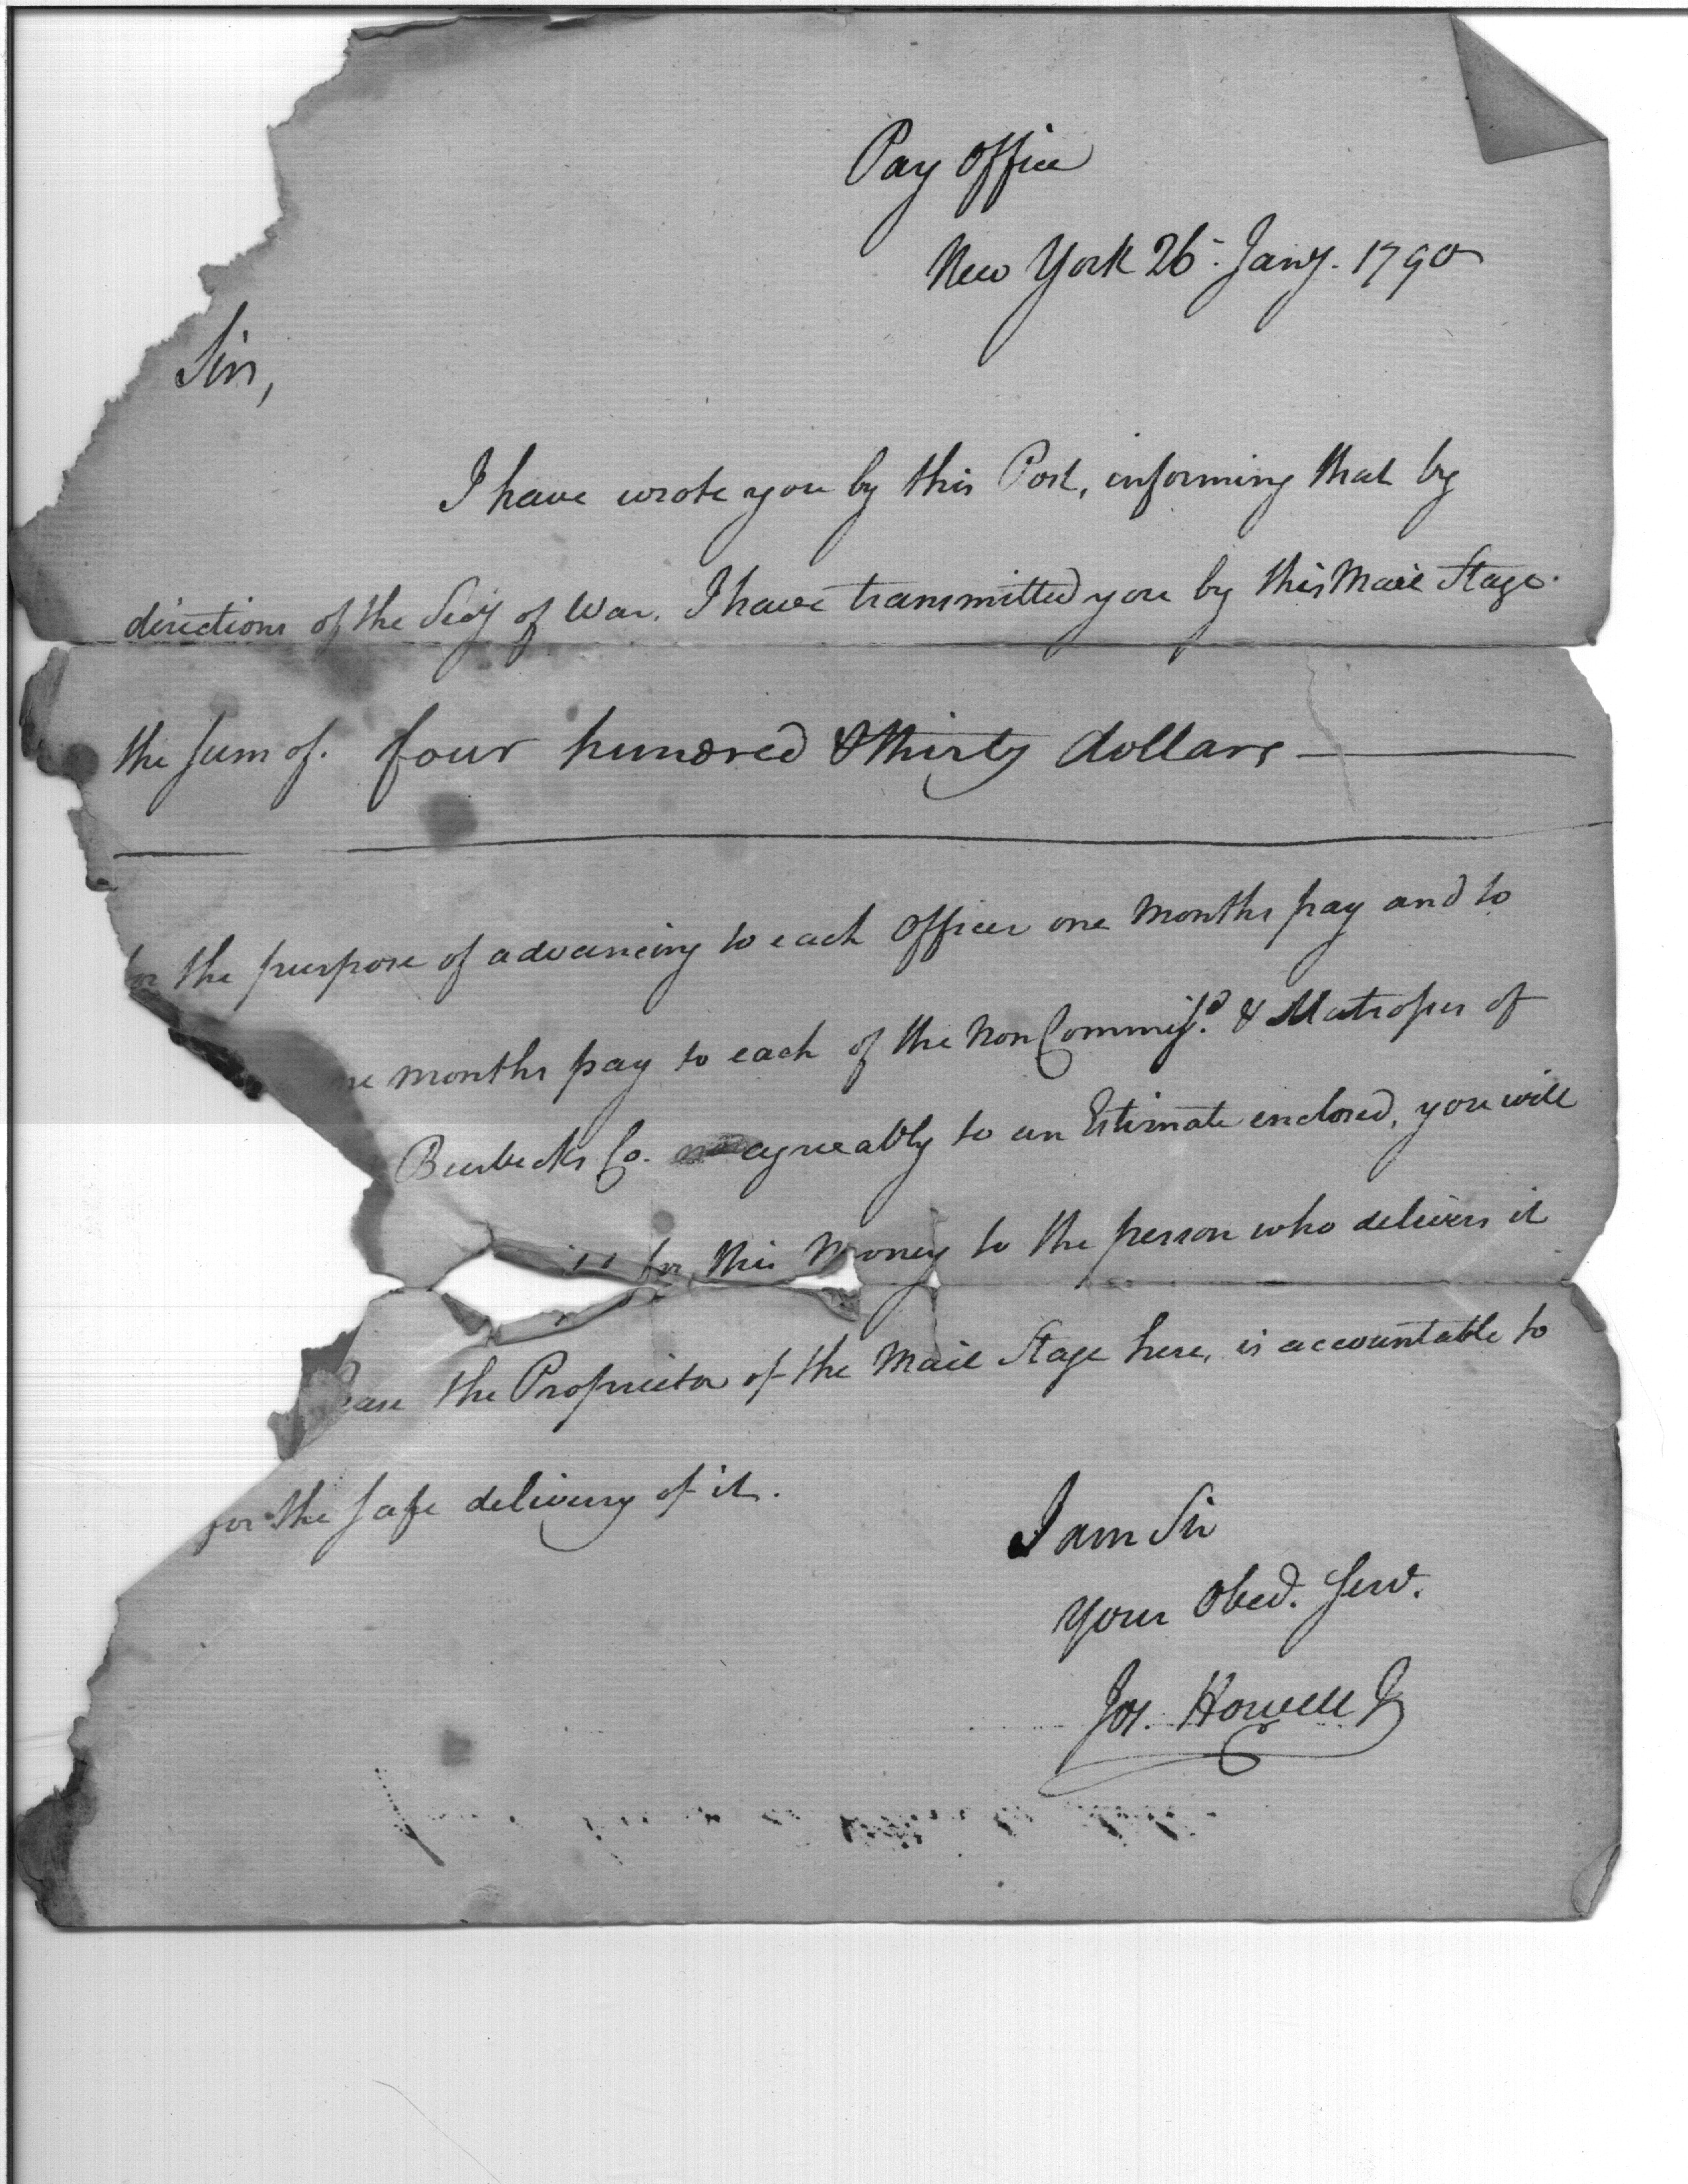 Pay Office
New York 26. Jany. 1790
Sir,
I have wrote you by this Post, informing that by
directions of the Secy of War. I have transmitted you by this Mail Stage.
the sum of. four hundred & thirty dollars
the purpose of advancing to each Officer one Months pay and to
months pay to each of the Non Commissd. & Matrosses of
Burbecks Co. agreeably to an Estimate enclosed, you will
for this Money to the person who delivers it
the Proprietor of the Mail Stage here, is accountable to
for the safe delivery of it.
I am Sir
Your Obed. Serv.
Jos. Howell Jr